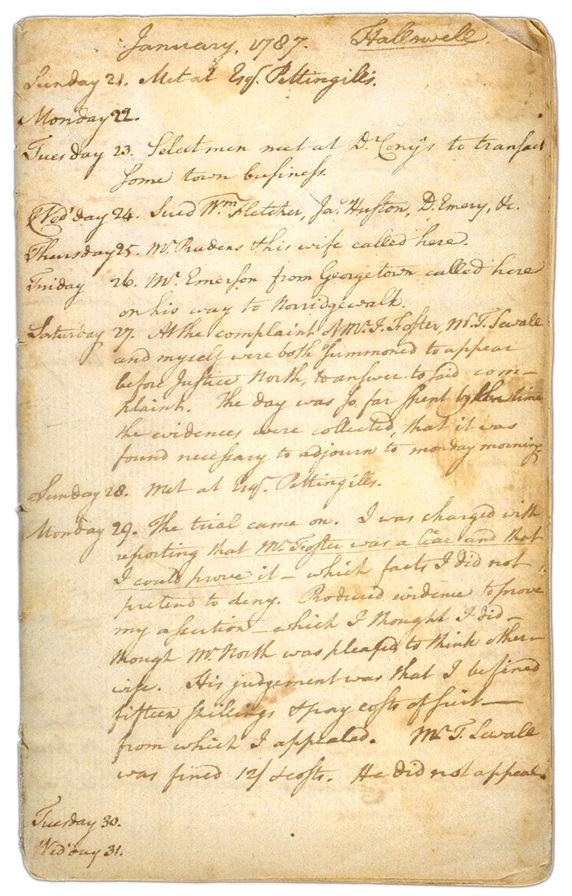 January, 1787. Hallowell
Sunday 21. Met at Esqr. Pettingill's.
Monday 22.
Tuesday 23. Selectmen meet at Dr. Cony's to transact
some town business.
Wed'day 24. Sued Wm. Fletcher, Jas. Huston, D. Emery, &c.
Thursday 25. Mr. Rudens & his wife called here.
Friday 26. Mr. Emerson from Georgetown called here
on his way to Norridgewalk.
Saturday 27. At the complaint of Mr. I. Foster, Mr. T. Sewall
and myself were both summoned to appear
before Justice North, to answer to said com-
plaint. The day was so far spent by the time
the evidences were collected, that it was
found necessary to adjourn to monday morning.
Sunday 28. Met at Esqr. Pettingills.
Monday 29. The trial came on. I was charged with
reporting that Mr. Foster was a liar and that
I could prove it — which facts I did not
pretend to deny. Produced evidence to prove
my assertion — which I thought I did —
though Mr. North was pleased to think other-
wise. His judgement was that I be fined
fifteen shillings & pay costs of suit —
from which I appealed. Mr. T. Sewall
was fined 12/ & costs. He did not appeal.
Tuesday 30.
Wed'day 31.